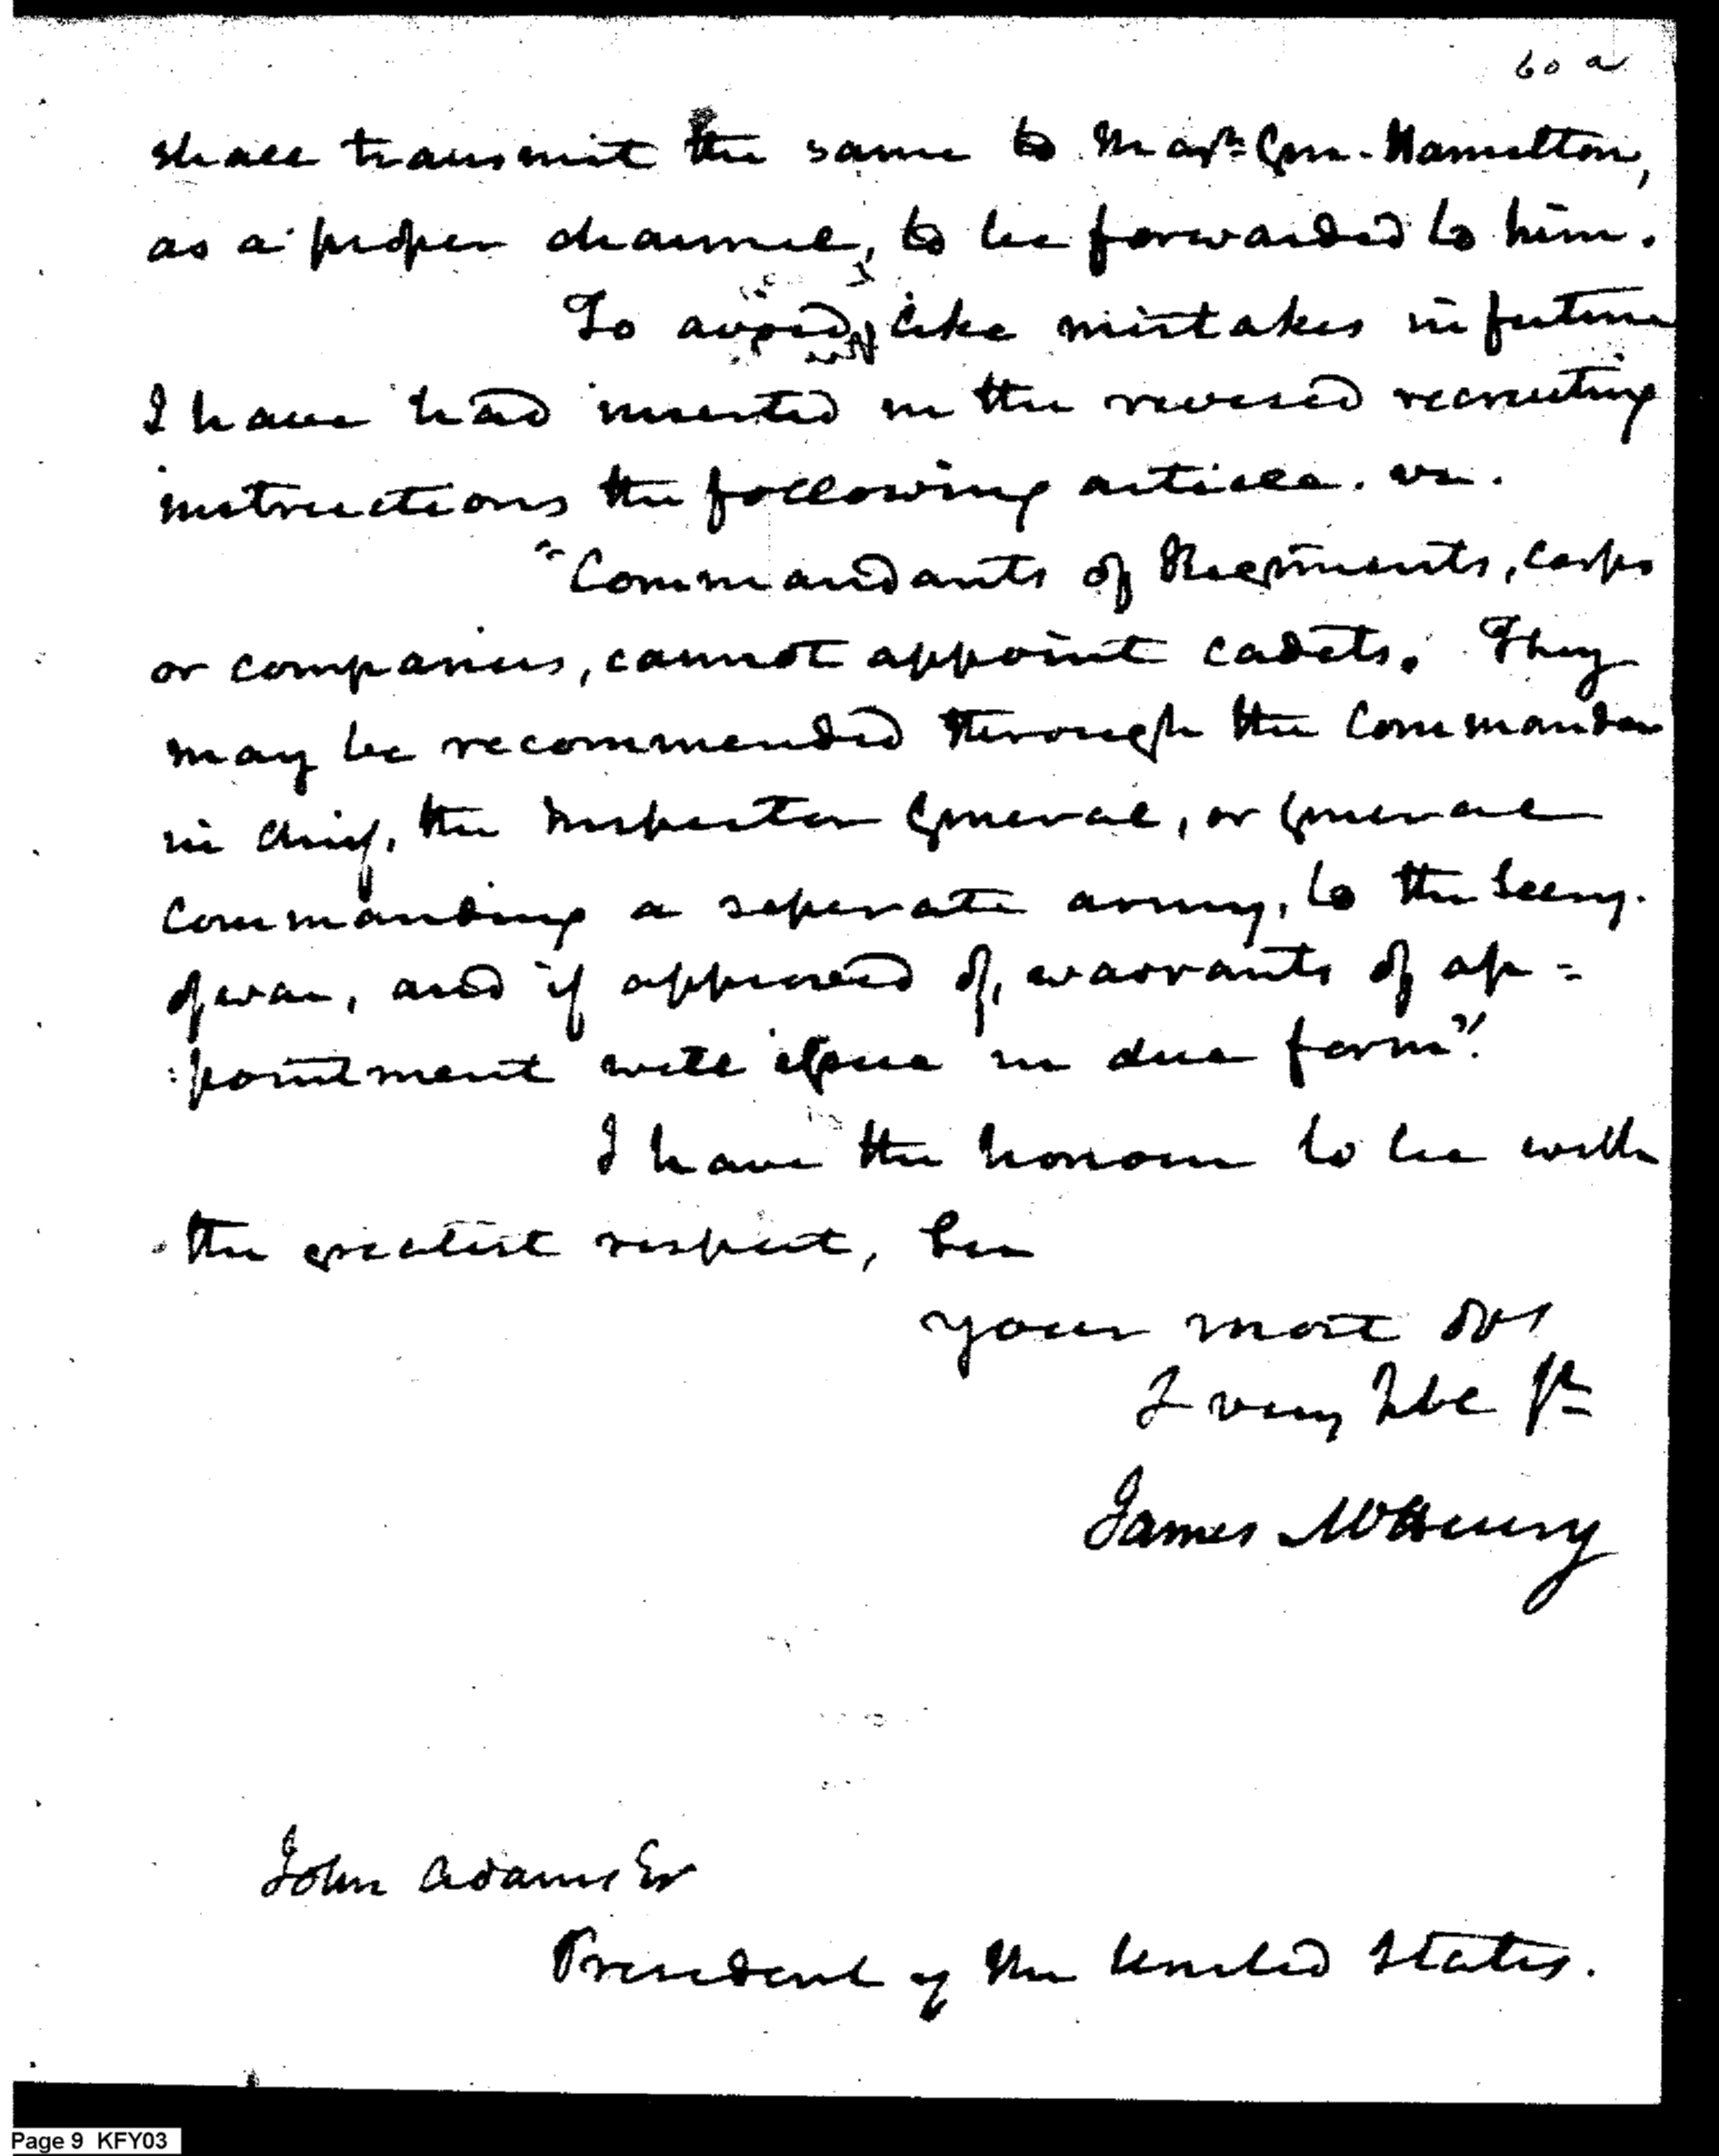 60 a
shall transmit the same to Majr. Gen. Hamilton,
as a proper channel, to be forwarded to him.
To avoid like mistakes in future
I have had inserted in the revised recruiting
instructions the following article. viz.
"Commandants of Regiments, corps
or companies, cannot appoint cadets. They
may be recommended through the Commander
in chief, the Inspector General, or General
commanding a seperate army, to the Secy.
of war, and if approved of, warrants of ap=
:pointment will issue in due form".
I have the honour to be with
the greatest respect, Sir
your most obt
& very hble St
James McHenry
John Adams Esr
President of the United States.
Page 9 KFY03